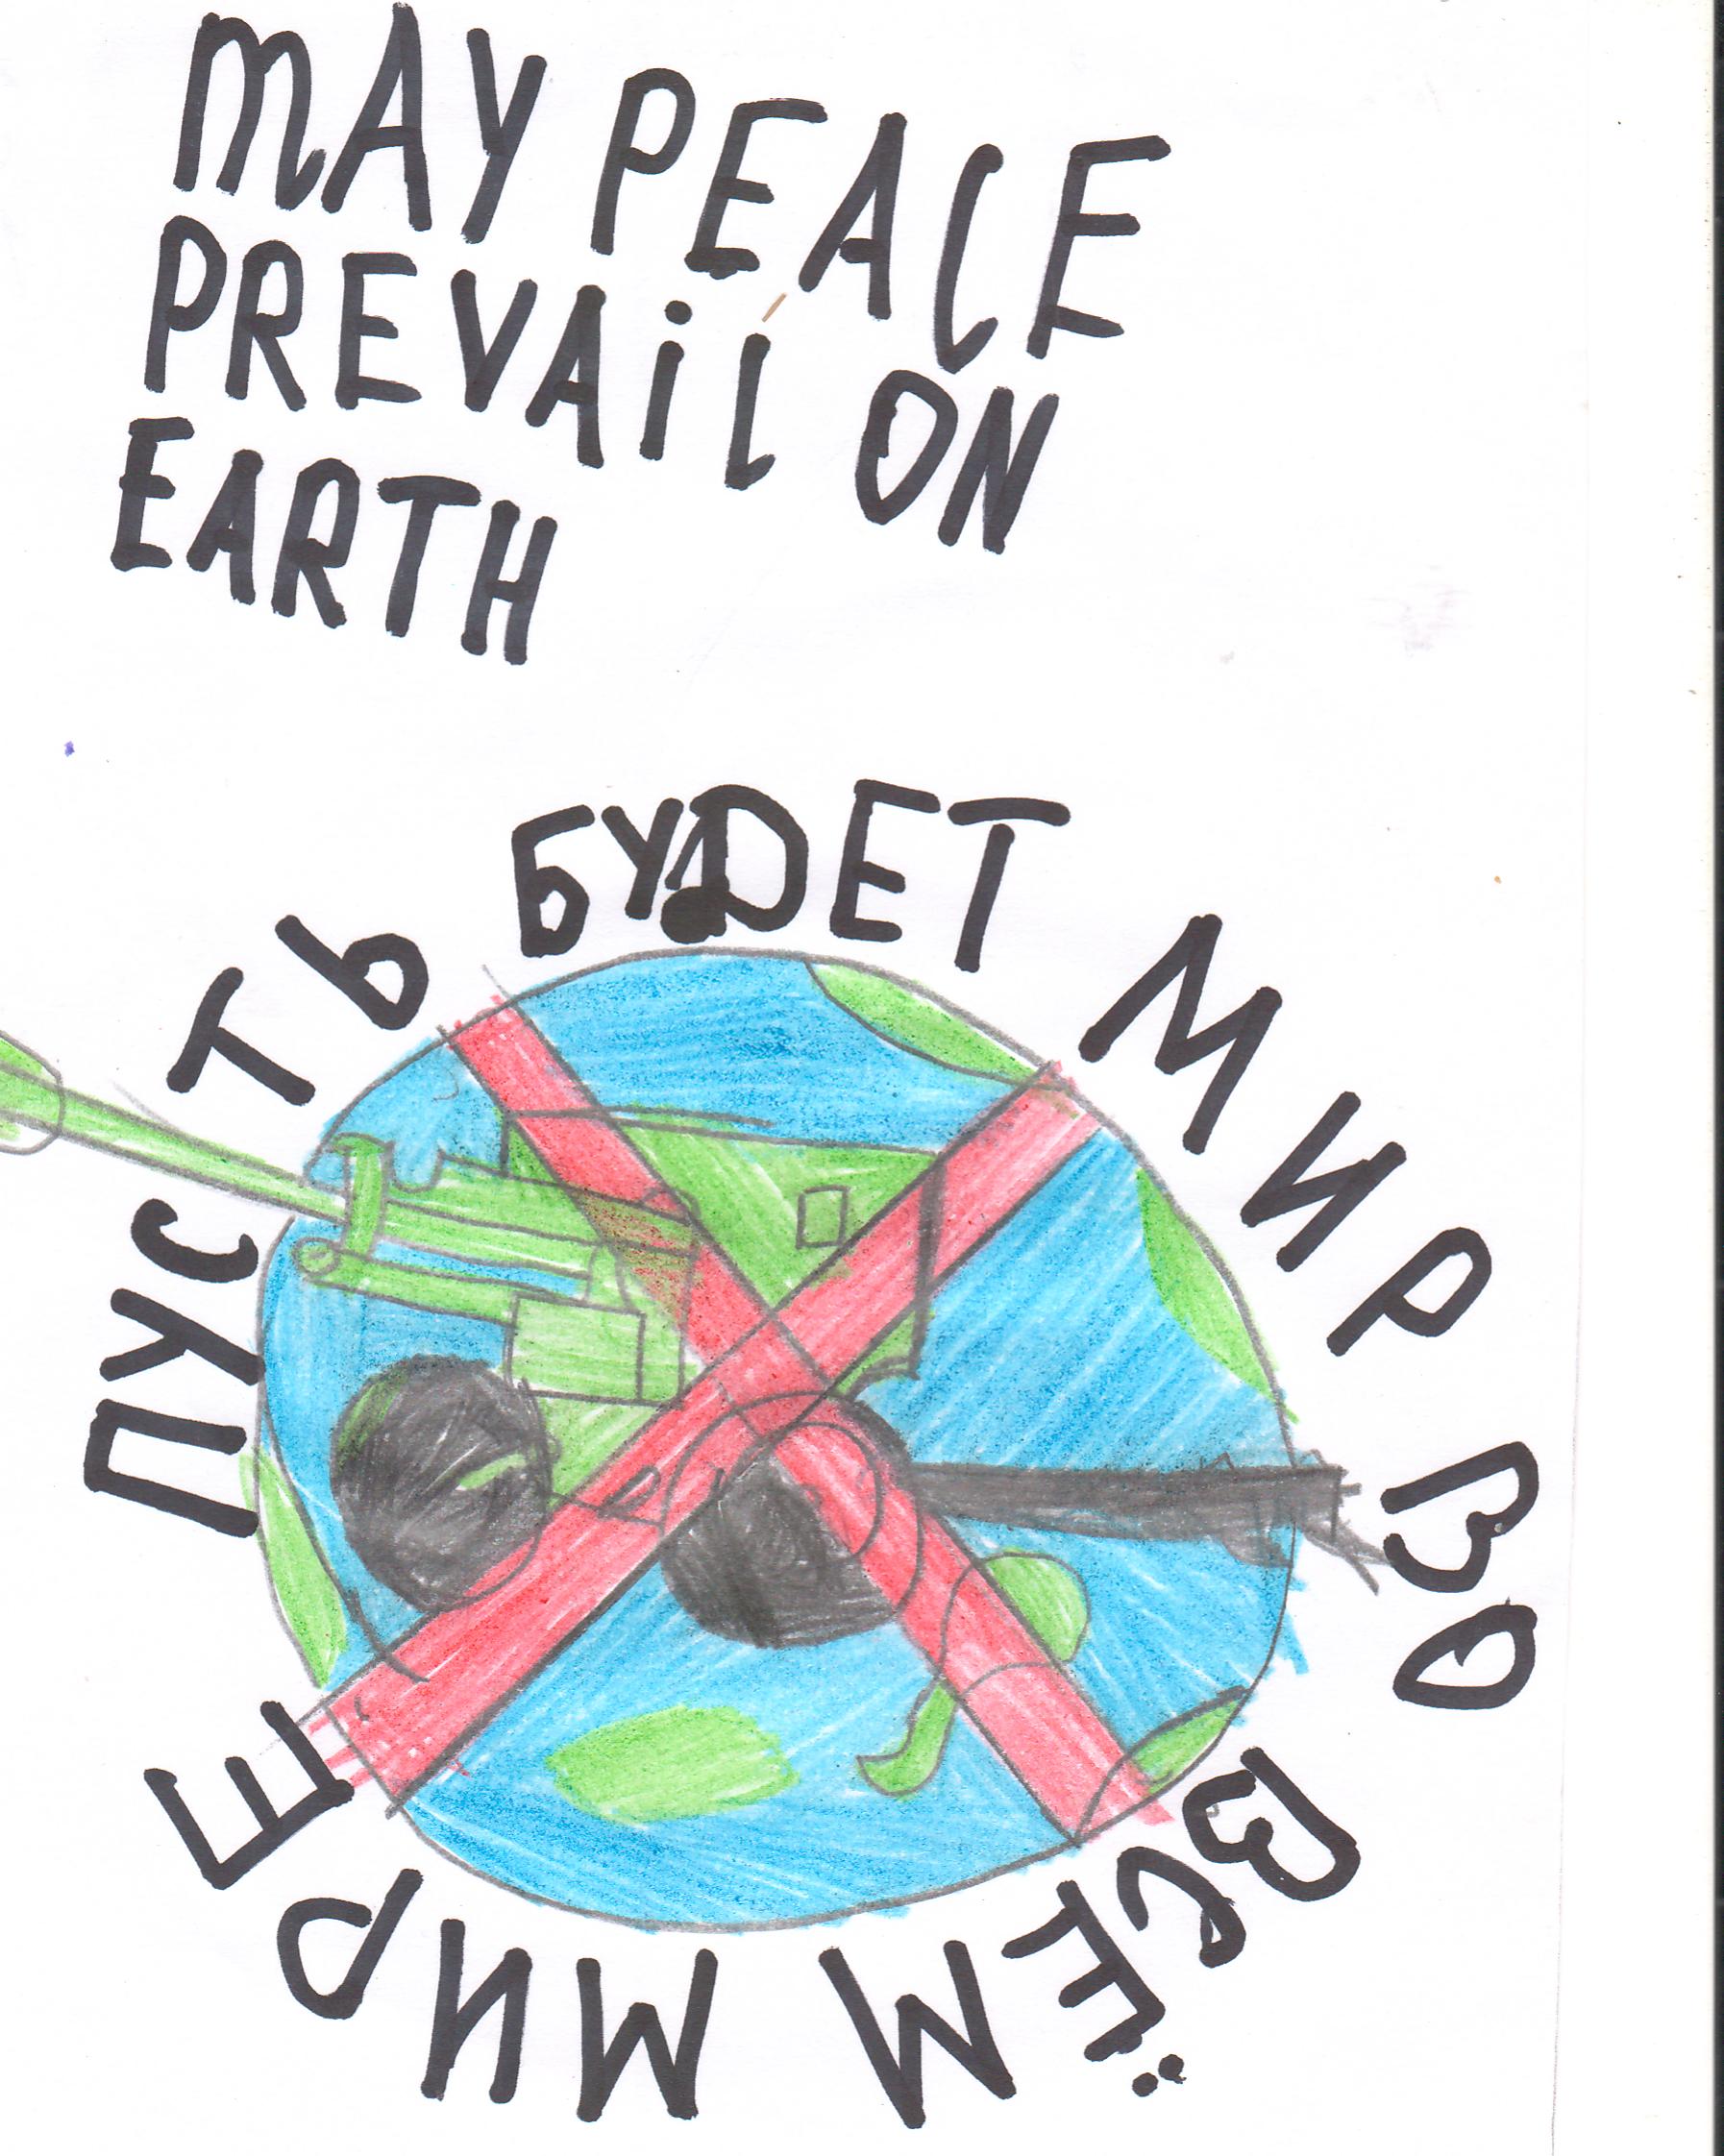 MAY PEACE
PREVAiL ON
EARTH
ПУСТЬ БУДЕТ МИР ВО ВСЁМ МИРЕ